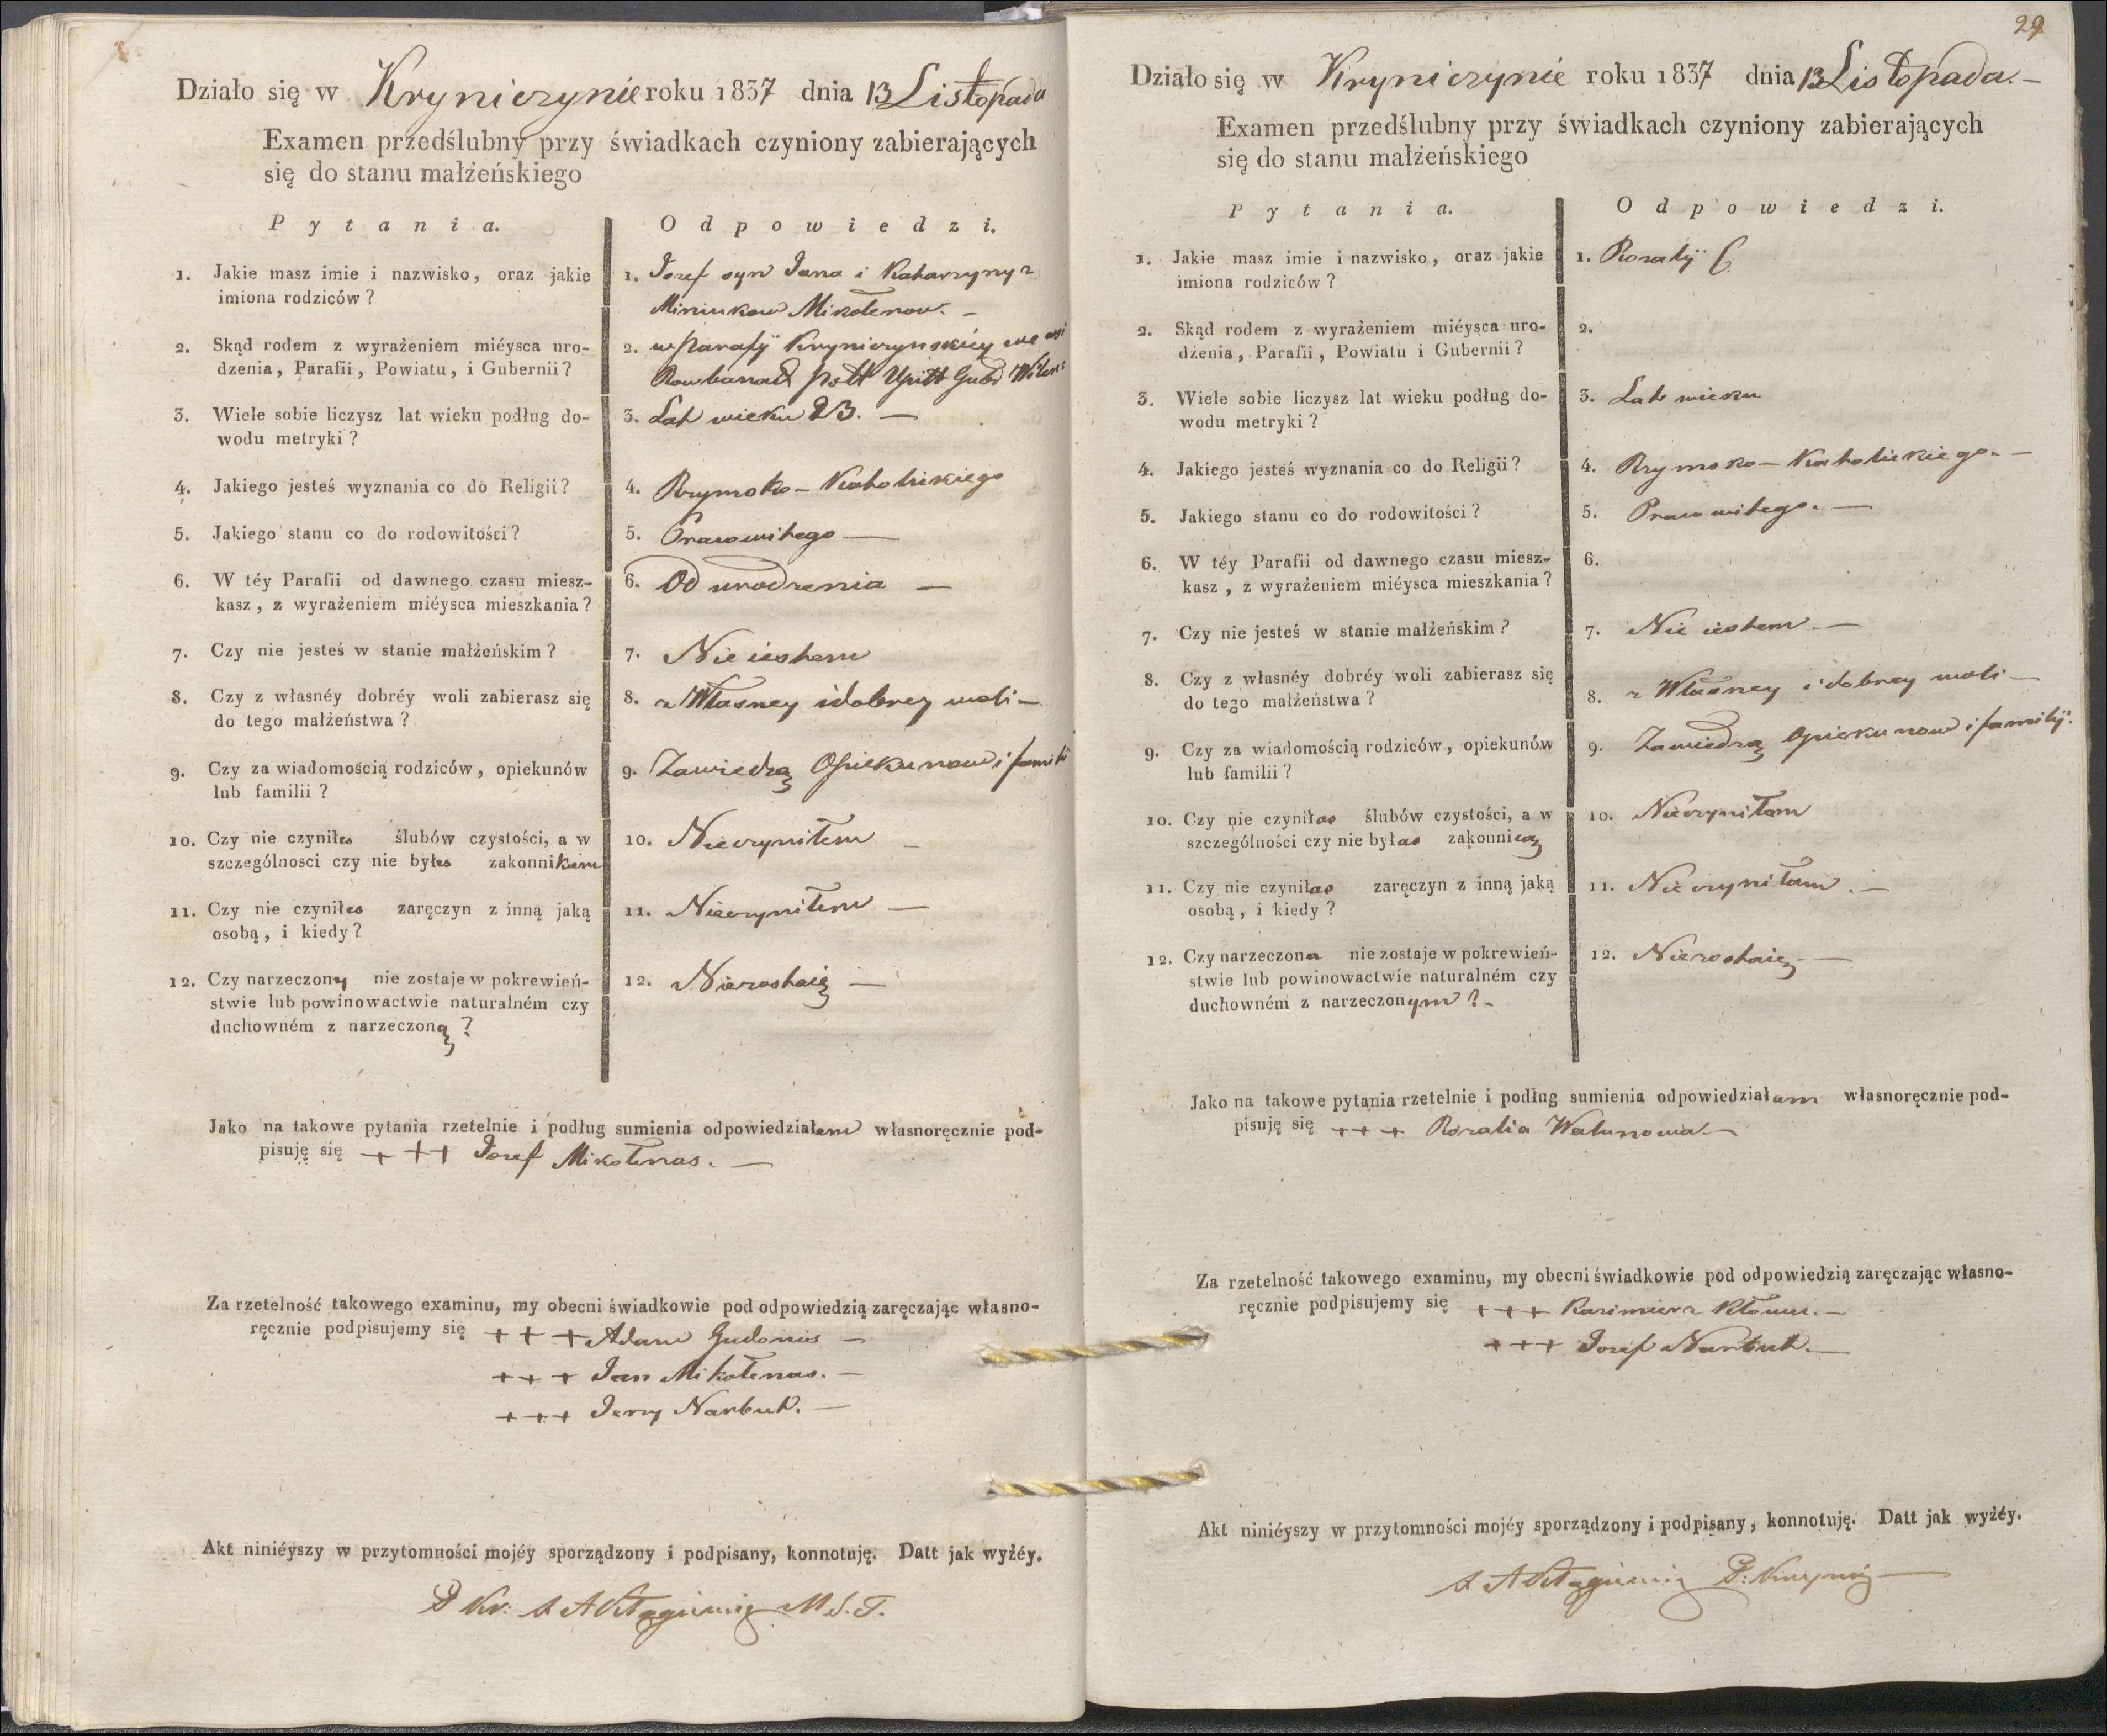 Działo się w Kryniczynie roku 1837 dnia 13 Listopada
Examen przedślubny przy świadkach czyniony zabierających
się do stanu małżeńskiego
Pytania.
Odpowiedzi.
1. Jakie masz imie i nazwisko, oraz jakie
imiona rodziców?
1. Jozef syn Jana i Katarzyny z
Mikołenow. –
2. Skąd rodem z wyrażeniem miéysca uro-
dzenia, Parafii, Powiatu, i Gubernii?
2. w Parafÿ Kryniczynskiéy we wsi
Powtt Upitt Gub Wilen
3. Wiele sobie liczysz lat wieku podług do-
wodu metryki?
3. Lat wieku 23. —
4. Jakiego jesteś wyznania co do Religii?
4. Rzymsko – Katolickiego
5. Jakiego stanu co do rodowitości?
5. Prawowitego —
6. W téy Parafii od dawnego czasu miesz-
kasz, z wyrażeniem miéysca mieszkania?
6. Od urodzenia —
7. Czy nie jesteś w stanie małżeńskim?
7. Nie iestem
8. Czy z własnéy dobréy woli zabierasz się
do tego małżeństwa?
8. z Własney i dobrey woli –
9. Czy za wiadomością rodziców, opiekunów
lub familii?
9. Zawiedzą Opiekunow i familÿ
10. Czy nie czyniłes ślubów czystości, a w
szczególnosci czy nie byłes zakonnikiem
10. Nieczyniłem –
11. Czy nie czyniłes zaręczyn z inną jaką
osobą, i kiedy?
11. Nieczyniłem —
12. Czy narzeczony nie zostaje w pokrewień-
stwie lub powinowactwie naturalném czy
duchowném z narzeczoną?
12. Niezostaię —
Jako na takowe pytania rzetelnie i podług sumienia odpowiedziałem własnoręcznie pod-
pisuję się +++ Jozef Mikołenas. —
Za rzetelność takowego examinu, my obecni świadkowie pod odpowiedzią zaręczając własno-
ręcznie podpisujemy się +++ Adam Gudonis –
+++ Jan Mikołenas. –
+++ Jerzy Narbut. —
Akt niniéyszy w przytomności mojéy sporządzony i podpisany, konnotuję. Datt jak wyżéy.
29
Działo się w Kryniczynie roku 1837 dnia 13 Listopada. –
Examen przedślubny przy świadkach czyniony zabierających
się do stanu małżeńskiego
Pytania.
Odpowiedzi.
1. Jakie masz imie i nazwisko, oraz jakie
imiona rodziców?
1. Rozalÿ
2. Skąd rodem z wyrażeniem miéysca uro-
dzenia, Parafii, Powiatu i Gubernii?
2.
3. Wiele sobie liczysz lat wieku podług do-
wodu metryki?
3. Lat wieku
4. Jakiego jesteś wyznania co do Religii?
4. Rzymsko – Katolickiego. –
5. Jakiego stanu co do rodowitości?
5. Prawowitego. —
6. W téy Parafii od dawnego czasu miesz-
kasz, z wyrażeniem miéysca mieszkania?
6.
7. Czy nie jesteś w stanie małżeńskim?
7. Nie iestem —
8. Czy z własnéy dobréy woli zabierasz się
do tego małżeństwa?
8. z Własney i dobrey woli —
9. Czy za wiadomością rodziców, opiekunów
lub familii?
9. Zawiedzą Opiekunow i familÿ.
10. Czy nie czyniłas ślubów czystości, a w
szczególności czy nie byłas zakonnicą
10. Nieczyniłam
11. Czy nie czyniłas zaręczyn z inną jaką
osobą, i kiedy?
11. Nie czyniłam. —
12. Czy narzeczona nie zostaje w pokrewień-
stwie lub powinowactwie naturalném czy
duchowném z narzeczonym? –
12. Niezostaię —
Jako na takowe pytania rzetelnie i podług sumienia odpowiedziałam własnoręcznie pod-
pisuję się +++ Rozalia Walunowa —
Za rzetelność takowego examinu, my obecni świadkowie pod odpowiedzią zaręczając własno-
ręcznie podpisujemy się +++ Kazimierz
+++ Jozef Narbut. —
Akt niniéyszy w przytomności mojéy sporządzony i podpisany, konnotuję. Datt jak wyżéy.